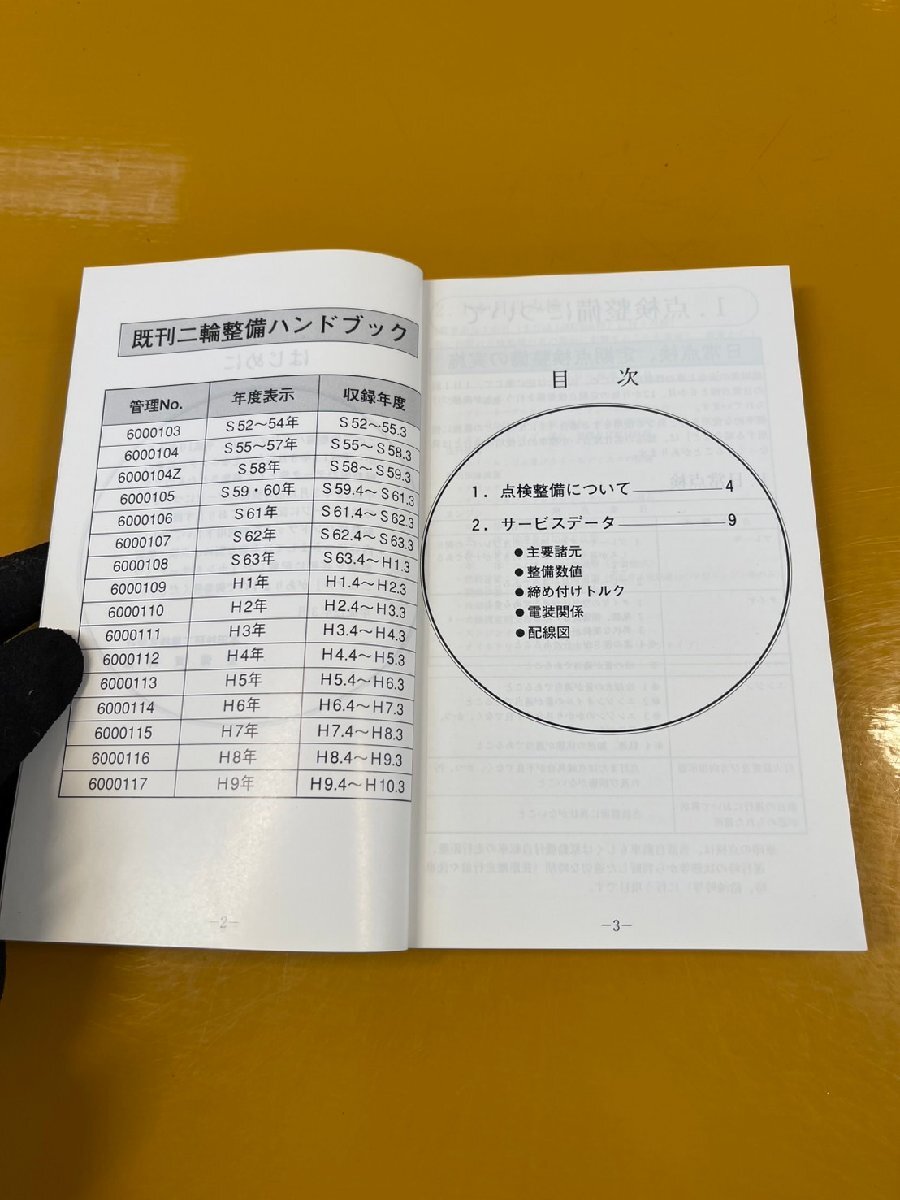 既刊二輪整備ハンドブック
管理No. 年度表示 収録年度
6000103 S52〜54年 S52〜55.3
6000104 S55〜57年 S55〜S58.3
6000104Z S58年 S58〜S59.3
6000105 S59・60年 S59.4〜S61.3
6000106 S61年 S61.4〜S62.3
6000107 S62年 S62.4〜S63.3
6000108 S63年 S63.4〜H1.3
6000109 H1年 H1.4〜H2.3
6000110 H2年 H2.4〜H3.3
6000111 H3年 H3.4〜H4.3
6000112 H4年 H4.4〜H5.3
6000113 H5年 H5.4〜H6.3
6000114 H6年 H6.4〜H7.3
6000115 H7年 H7.4〜H8.3
6000116 H8年 H8.4〜H9.3
6000117 H9年 H9.4〜H10.3
―2―
目 次
1．点検整備について 4
2．サービスデータ 9
●主要諸元
●整備数値
●締め付けトルク
●電装関係
●配線図
―3―